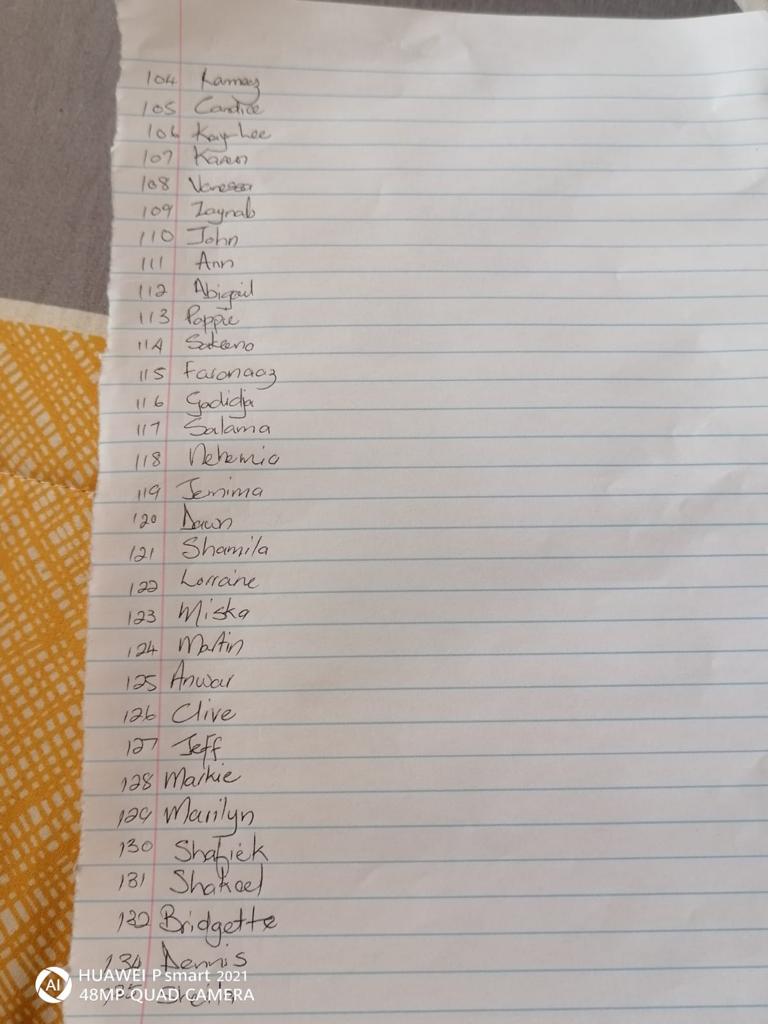 104 Ramaaz
105 Candice
106 Kay-Lee
107 Karen
108 Vanessa
109 Zaynab
110 John
111 Ann
112 Abigail
113 Poppie
114 Sakeena
115 Faronaaz
116 Gadidja
117 Salama
118 Nehemia
119 Jemima
120 Dawn
121 Shamila
122 Lorraine
123 Miska
124 Martin
125 Anwar
126 Clive
127 Jeff
128 Markie
129 Marilyn
130 Shafiek
131 Shakeel
132 Bridgette
134 Dennis
135
AI HUAWEI P smart 2021
48MP QUAD CAMERA